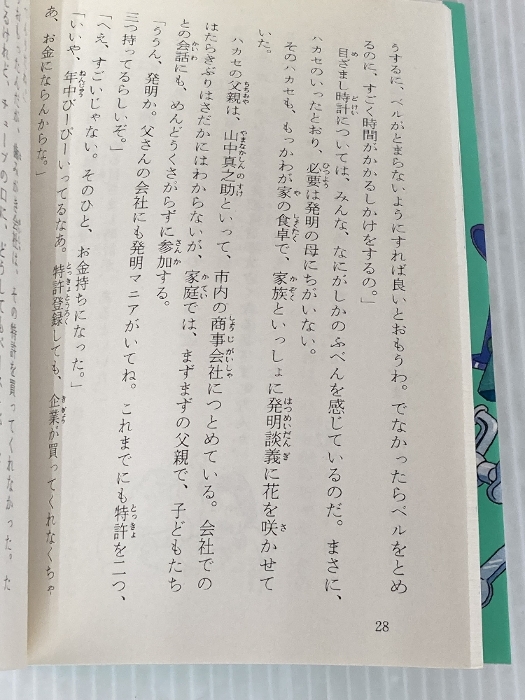 うするに、ベルがとまらないようにすれば良いとおもうわ。でなかったらベルをとめ
るのに、すごく時間がかかるしかけをするの。」
目ざまし時計については、みんな、なにがしかのふべんを感じているのだ。まさに、
ハカセのいったとおり、必要は発明の母にちがいない。
そのハカセも、もっかわが家の食卓で、家族といっしょに発明談義に花を咲かせて
いた。
ハカセの父親は、山中真之助といって、市内の商事会社につとめている。会社での
はたらきぶりはさだかにはわからないが、家庭では、まずまずの父親で、子どもたち
との会話にも、めんどうくさがらずに参加する。
「ううん、発明か。父さんの会社にも発明マニアがいてね。これまでにも特許を二つ、
三つ持ってるらしいぞ。」
「へえ、すごいじゃない。そのひと、お金持ちになった。」
「いいや、年中びーびーいってるなあ。特許登録しても、企業が買ってくれなくちゃ
あ、お金にならんからな。」
その特許を買ってくれなかった。た
28